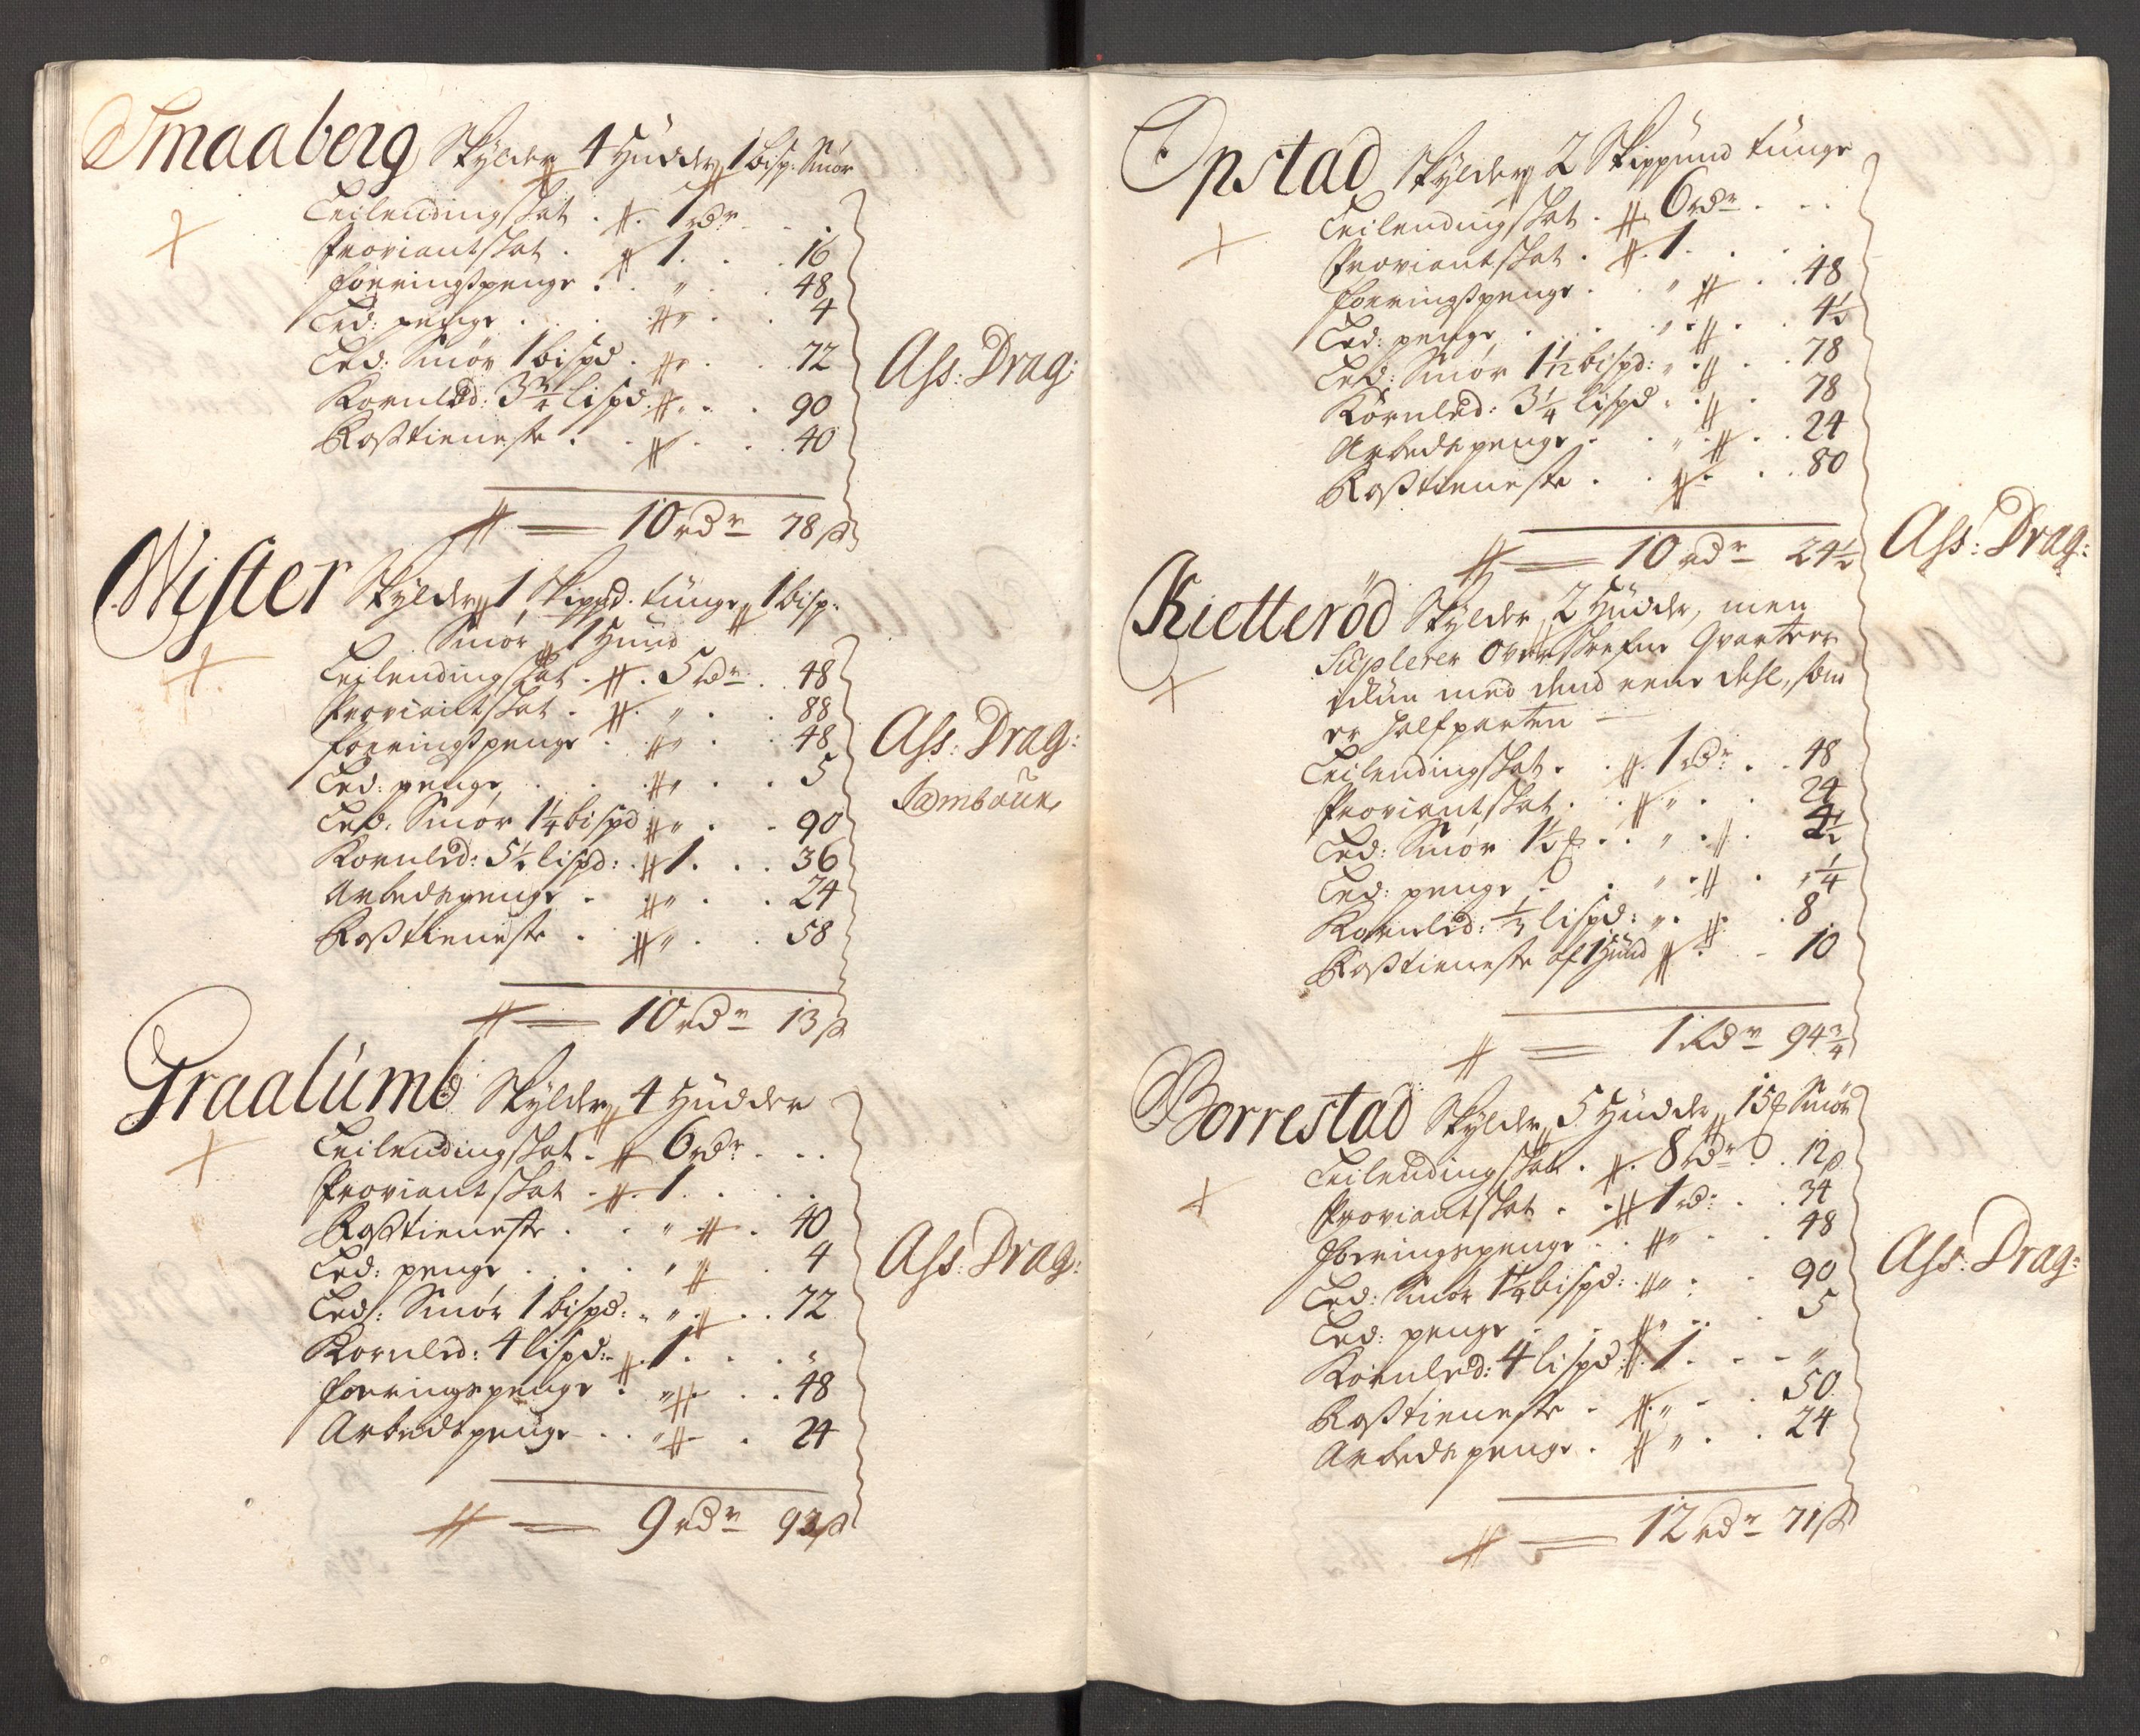 Smaaberg Skylder 4 Hüdder 1 bisp: Smør
Leilendingskat . 7 rdr . .
Proviantskat . 1 . . 16
foeringspenge . " . 48
Led: penge . . " . 4
Led: Smør 1 bispd . " . 72
Kornled: 3 3/4 lispd " . . 90
Rosstieneste . . . 40
10 rdr 78 ß
Ass: Drag:
Wister Skylder 1 Skippd. tünge 1 bisp:
Smør 1 Hüud
Leilendingskat . 5 rdr . 48
Proviantskat . " . . 88
foeringspenge . " . 48
Led: penge, . . " . . 5
Led: Smør 1 1/4 bispd " . . 90
Kornled: 5 1/2 lispd: . 1 . . 36
Arbedspenge . " . . 24
Rosstieneste . " . . 58
10 rdr 13 ß
Ass: Drag:
Graalümb Skylder 4 Hüdder
Leilendingskat . 6 rdr . . .
Proviantskat . 1 . . .
Rosstieneste . . " . 40
Led: penge . . . . 4
Led: Smør 1 bispd: . " . . 72
Kornled: 4 lispd: . 1 . . "
foeringspenge . " . . 48
Arbedspenge . . " . 24
9 rdr 92 ß
Ass: Drag:
Opstad Skylder 2 Skippund tünge
Leilendingskat . 6 rdr . . .
Proviantskat . 1 . . .
foeringspenge . . " . . 48
Led: penge . . . " . . 4 1/2
Led: Smør 1 1/12 bispd: " . . 78
Kornled: 3 1/4 lispd " . . 78
Arbedspenge . . " . . 24
Rosstieneste . . " . . 80
10 rdr 24 1/2
Ass: Drag:
Kietterød Skylder 2 Hüdder, men
Süplerer Qvarteer
ickün med dend eene deel, som
er halfparten —
Leilendingskat . . 1 rdr . . 48
Proviantskat . . " . . 24
Led: Smør 1 1/2 . . " . . 4 1/2
Led: penge . . " . . " 1/4
Kornled: 1/3 lispd: " . . 8
Rosstieneste af 1 Hüud . - 10
1 Rdr 94 3/4
Borrestad Skylder 5 Hüdder 15 Smør
Leilendingskat . 8 rdr . . 12 ß
Proviantskat . . 1 rd: . . 34
foeringspenge . . " . . 48
Led: Smør 1 1/4 bispd: . " . . 90
Led: penge . . " . . . 5
Kornled: 4 lispd: 1 . . - "
Rosstieneste . " . . 50
Arbedspenge . " . . 24
12 rdr 71 ß
Ass: Drag: